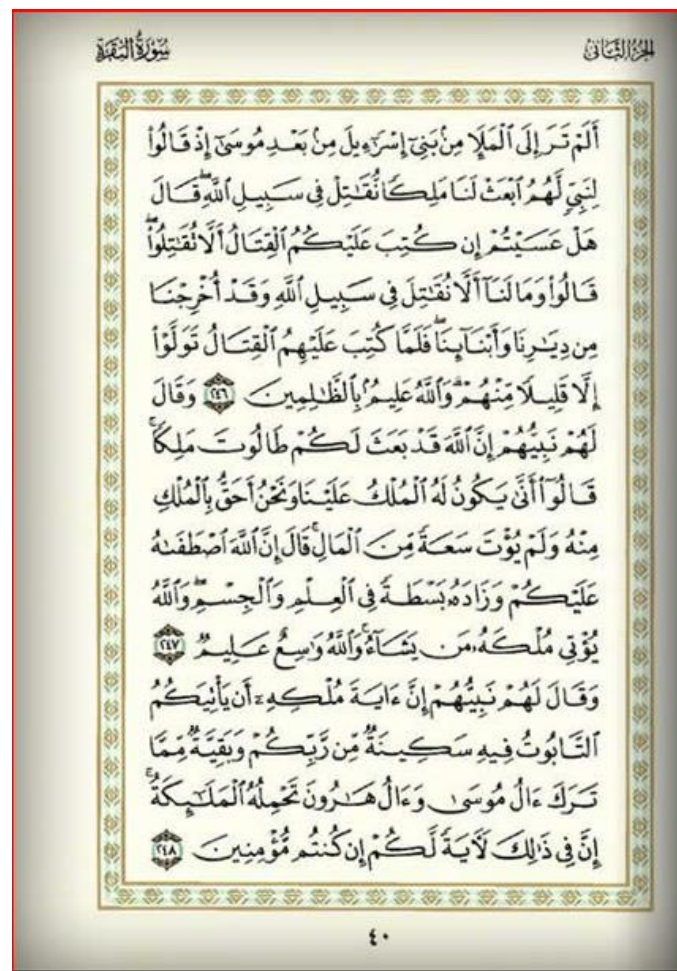 سُورَةُ الْبَقَرَةِ
الجُزْءُ الثَّانِي
أَلَمْ تَرَ إِلَى ٱلْمَلَإِ مِنۢ بَنِىٓ إِسْرَٰٓءِيلَ مِنۢ بَعْدِ مُوسَىٰٓ إِذْ قَالُوا۟
لِنَبِىٍّ لَّهُمُ ٱبْعَثْ لَنَا مَلِكًا نُّقَٰتِلْ فِى سَبِيلِ ٱللَّهِ ۖ قَالَ
هَلْ عَسَيْتُمْ إِن كُتِبَ عَلَيْكُمُ ٱلْقِتَالُ أَلَّا تُقَٰتِلُوا۟ ۖ
قَالُوا۟ وَمَا لَنَآ أَلَّا نُقَٰتِلَ فِى سَبِيلِ ٱللَّهِ وَقَدْ أُخْرِجْنَا
مِن دِيَٰرِنَا وَأَبْنَآئِنَا ۖ فَلَمَّا كُتِبَ عَلَيْهِمُ ٱلْقِتَالُ تَوَلَّوْا۟
إِلَّا قَلِيلًا مِّنْهُمْ ۗ وَٱللَّهُ عَلِيمٌۢ بِٱلظَّٰلِمِينَ ٢٤٦ وَقَالَ
لَهُمْ نَبِيُّهُمْ إِنَّ ٱللَّهَ قَدْ بَعَثَ لَكُمْ طَالُوتَ مَلِكًا ۚ
قَالُوٓا۟ أَنَّىٰ يَكُونُ لَهُ ٱلْمُلْكُ عَلَيْنَا وَنَحْنُ أَحَقُّ بِٱلْمُلْكِ
مِنْهُ وَلَمْ يُؤْتَ سَعَةً مِّنَ ٱلْمَالِ ۚ قَالَ إِنَّ ٱللَّهَ ٱصْطَفَىٰهُ
عَلَيْكُمْ وَزَادَهُۥ بَسْطَةً فِى ٱلْعِلْمِ وَٱلْجِسْمِ ۖ وَٱللَّهُ
يُؤْتِى مُلْكَهُۥ مَن يَشَآءُ ۚ وَٱللَّهُ وَٰسِعٌ عَلِيمٌ ٢٤٧
وَقَالَ لَهُمْ نَبِيُّهُمْ إِنَّ ءَايَةَ مُلْكِهِۦٓ أَن يَأْتِيَكُمُ
ٱلتَّابُوتُ فِيهِ سَكِينَةٌ مِّن رَّبِّكُمْ وَبَقِيَّةٌ مِّمَّا
تَرَكَ ءَالُ مُوسَىٰ وَءَالُ هَٰرُونَ تَحْمِلُهُ ٱلْمَلَٰٓئِكَةُ ۚ
إِنَّ فِى ذَٰلِكَ لَءَايَةً لَّكُمْ إِن كُنتُم مُّؤْمِنِينَ ٢٤٨
٤٠